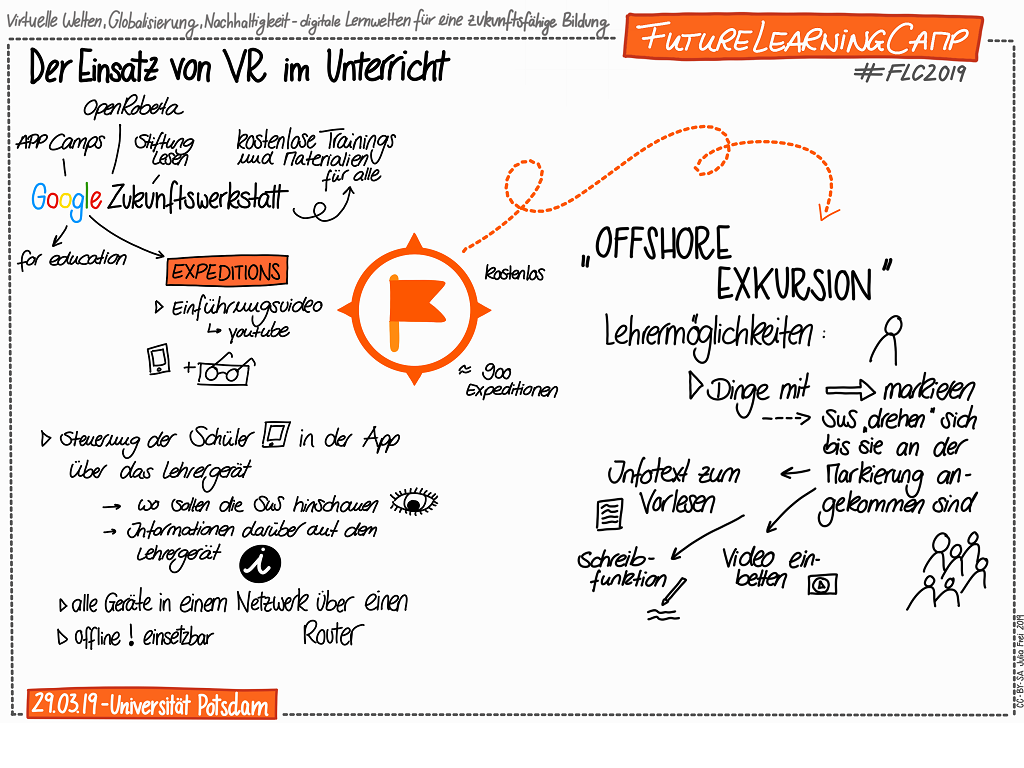 Virtuelle Welten, Globalisierung, Nachhaltigkeit - digitale Lernwelten für eine zukunftsfähige Bildung
FUTURELEARNINGCAMP
#FLC2019
Der Einsatz von VR im Unterricht
OpenRoberta
APP Camps
Stiftung
Lesen
kostenlose Trainings
und Materialien
für alle
Google Zukunftswerkstatt
for education
EXPEDITIONS
Einführungsvideo
youtube
+
kostenlos
≈ 900
Expeditionen
Steuerung der Schüler in der App
über das Lehrergerät
→ wo sollen die SuS hinschauen
→ Informationen darüber auf dem
Lehrergerät
i
alle Geräte in einem Netzwerk über einen
Router
offline! einsetzbar
"OFFSHORE
EXKURSION"
Lehrermöglichkeiten:
Dinge mit ⇒ markieren
SuS „drehen" sich
bis sie an der
Markierung an-
gekommen sind
Infotext zum
Vorlesen
Schreib-
funktion
Video ein-
betten
29.03.19 - Universität Potsdam
CC-BY-SA Julia Frei 2019